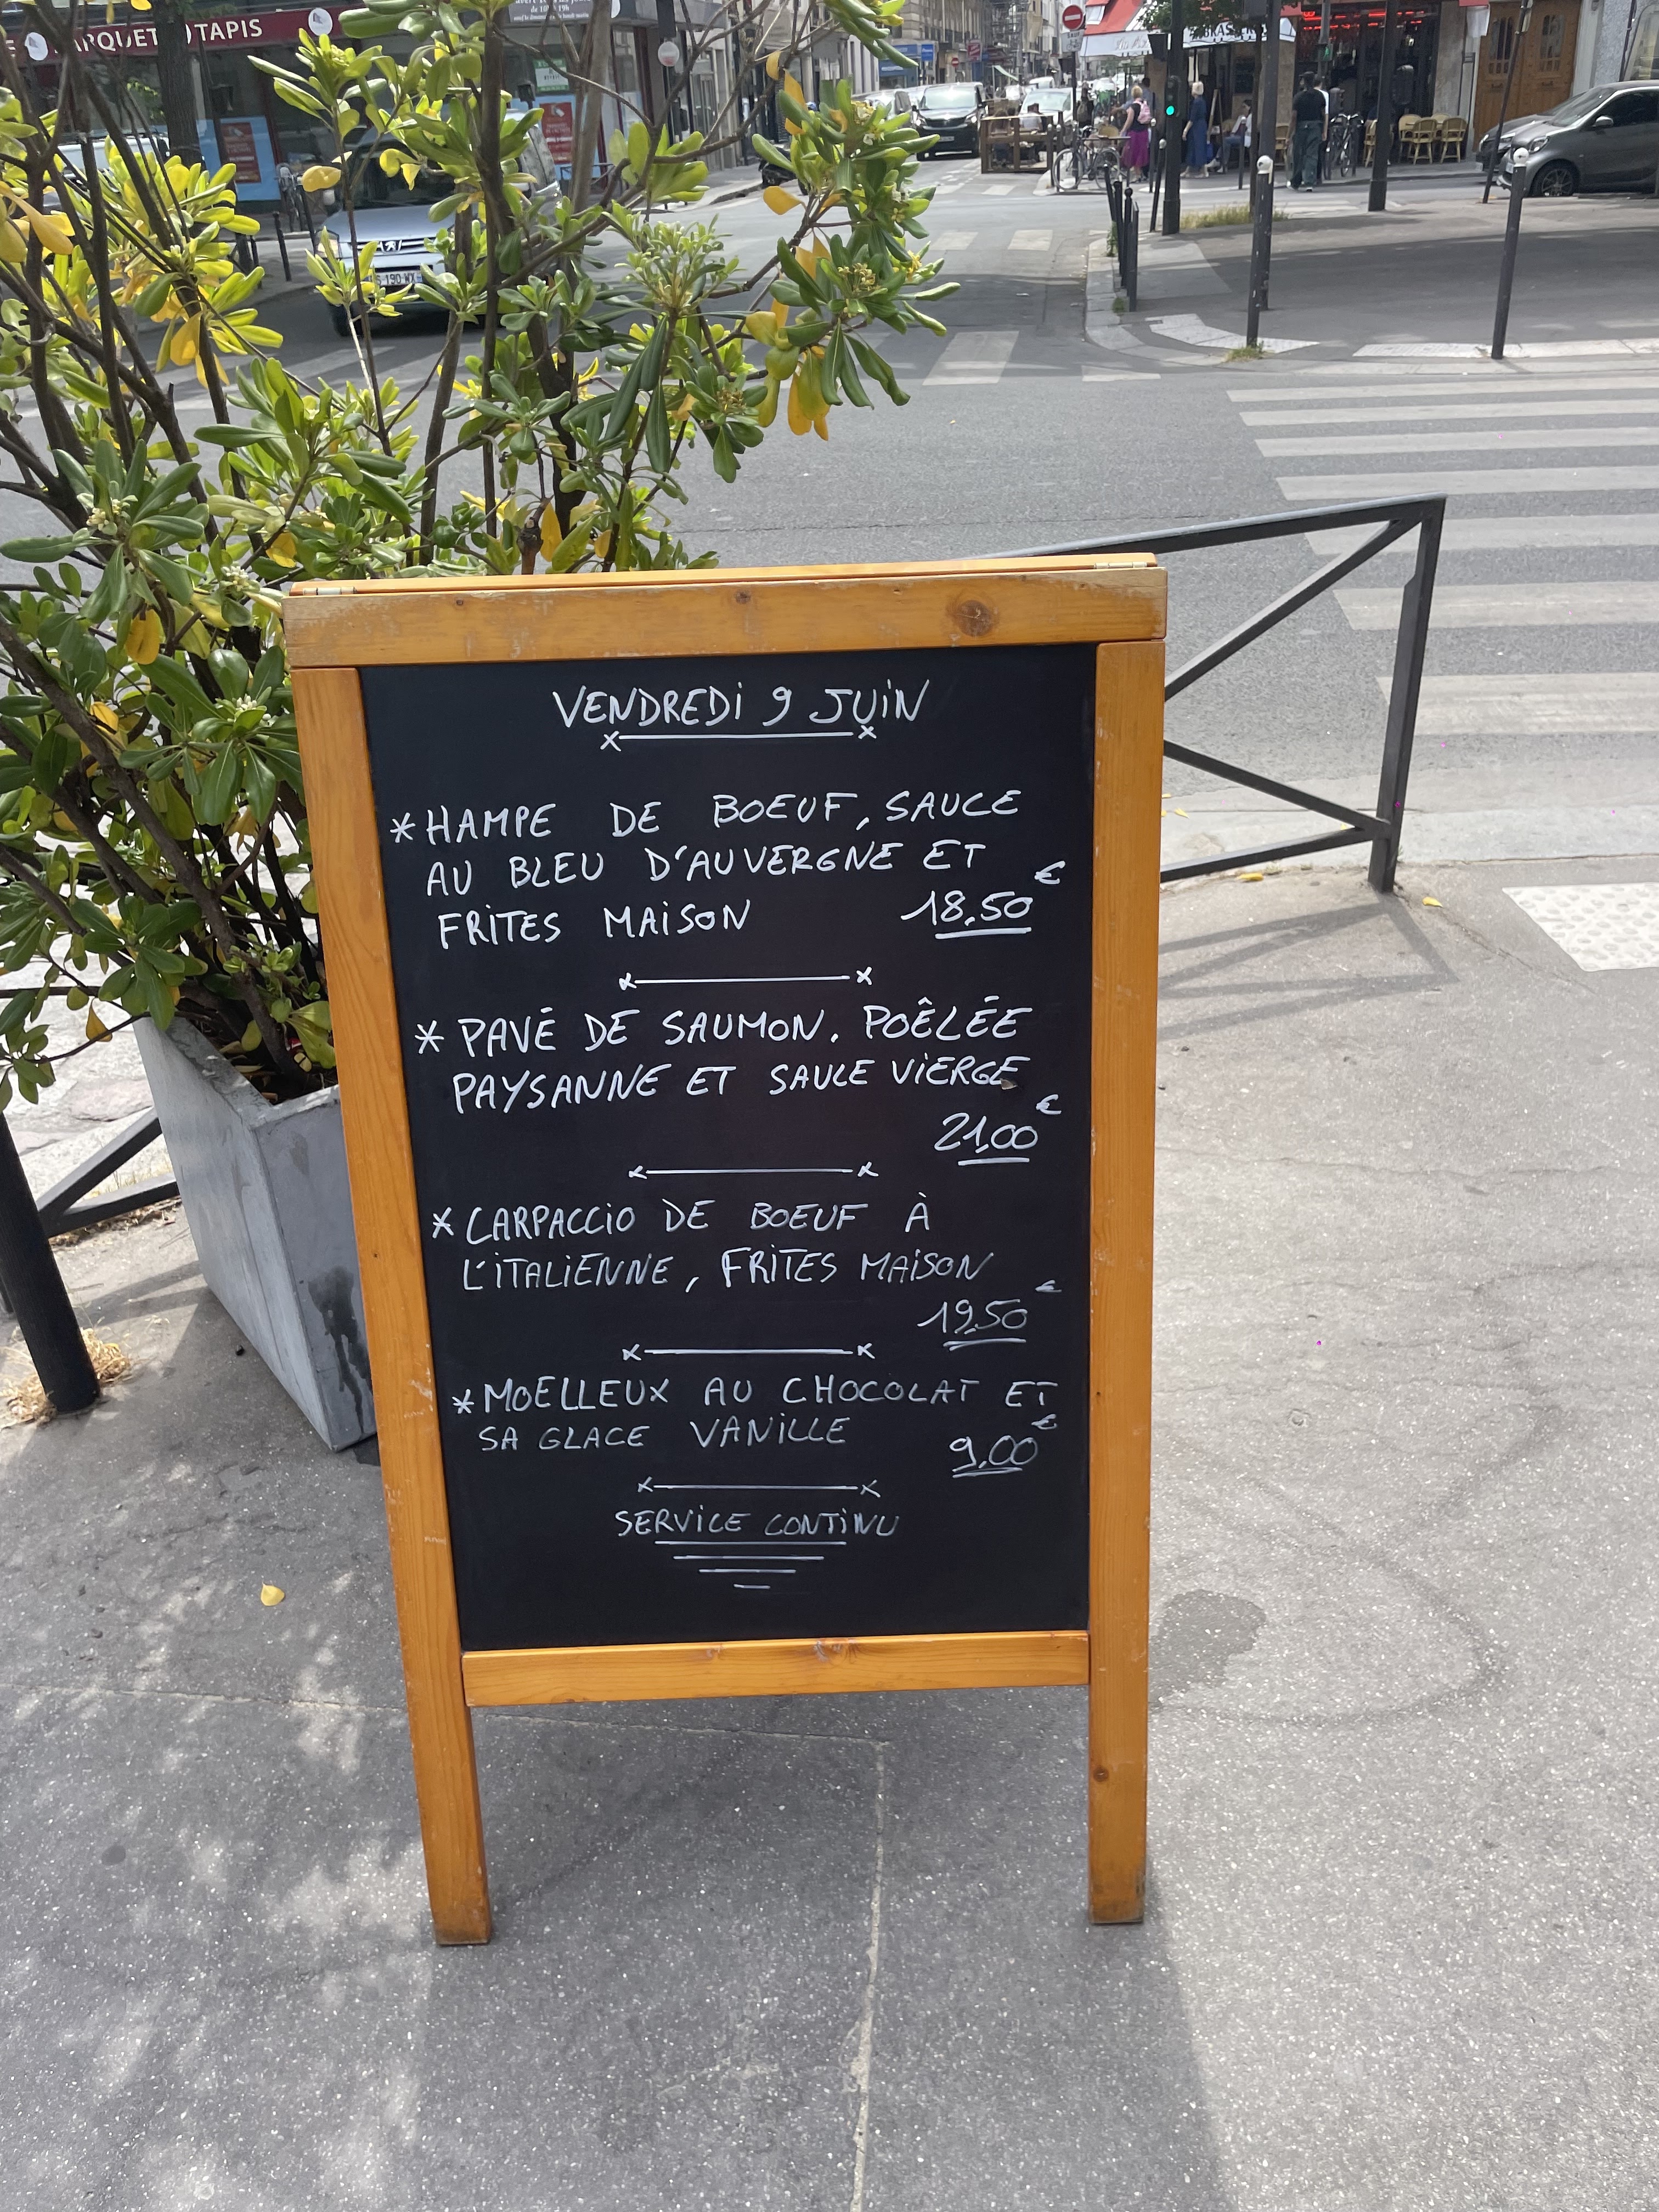 PARQUET TAPIS
BRAS
190 WX
VENDREDI 9 JUIN
* HAMPE DE BOEUF, SAUCE
AU BLEU D'AUVERGNE ET
FRITES MAISON 18,50 €
* PAVÉ DE SAUMON, POÊLÉE
PAYSANNE ET SAUCE VIERGE
21,00 €
* CARPACCIO DE BOEUF À
L'ITALIENNE, FRITES MAISON
19,50 €
* MOELLEUX AU CHOCOLAT ET
SA GLACE VANILLE 9,00 €
SERVICE CONTINU